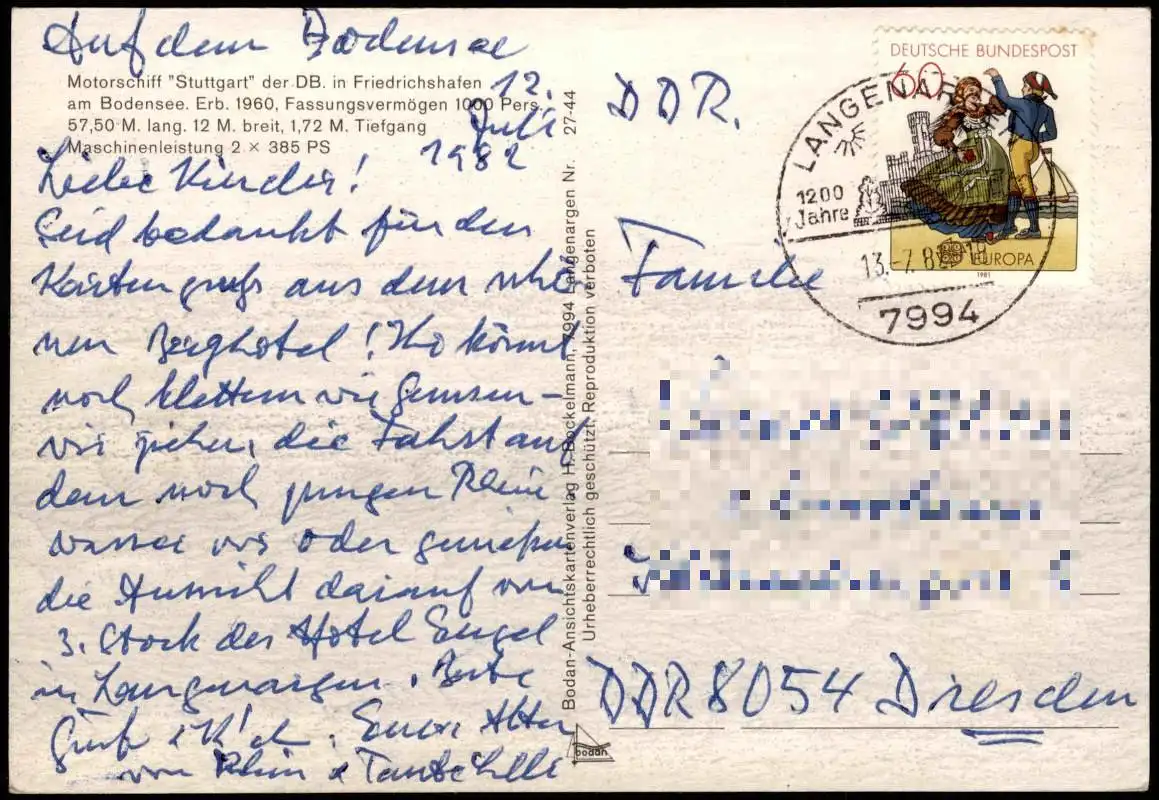 Auf dem Bodensee
Motorschiff "Stuttgart" der DB. in Friedrichshafen
am Bodensee. Erb. 1960, Fassungsvermögen 1000 Pers.
57,50 M. lang. 12 M. breit, 1,72 M. Tiefgang
Maschinenleistung 2 × 385 PS
12.
Juli
1982
Liebe Kinder!
Seid bedankt für den
Kartengruß aus dem schö
nen Berghotel! Ihr könnt
noch klettern wie Gemsen –
wir ziehen die Fahrt auf
dem noch jungen Rhein
wasser vor oder genießen
die Aussicht darauf vom
3. Stock des Hotel Engel
in Langenargen. Beste
Grüße Eure Alten
vom Rhein &
Bodan-Ansichtskartenverlag H. Bockelmann, 7994 Langenargen Nr. 27-44
Urheberrechtlich geschützt. Reproduktion verboten
bodan
DEUTSCHE BUNDESPOST
60
EUROPA
1981
LANGENAR
1200
Jahre
13.-7.82
7994
DDR.
Familie
DDR 8054 Dresden